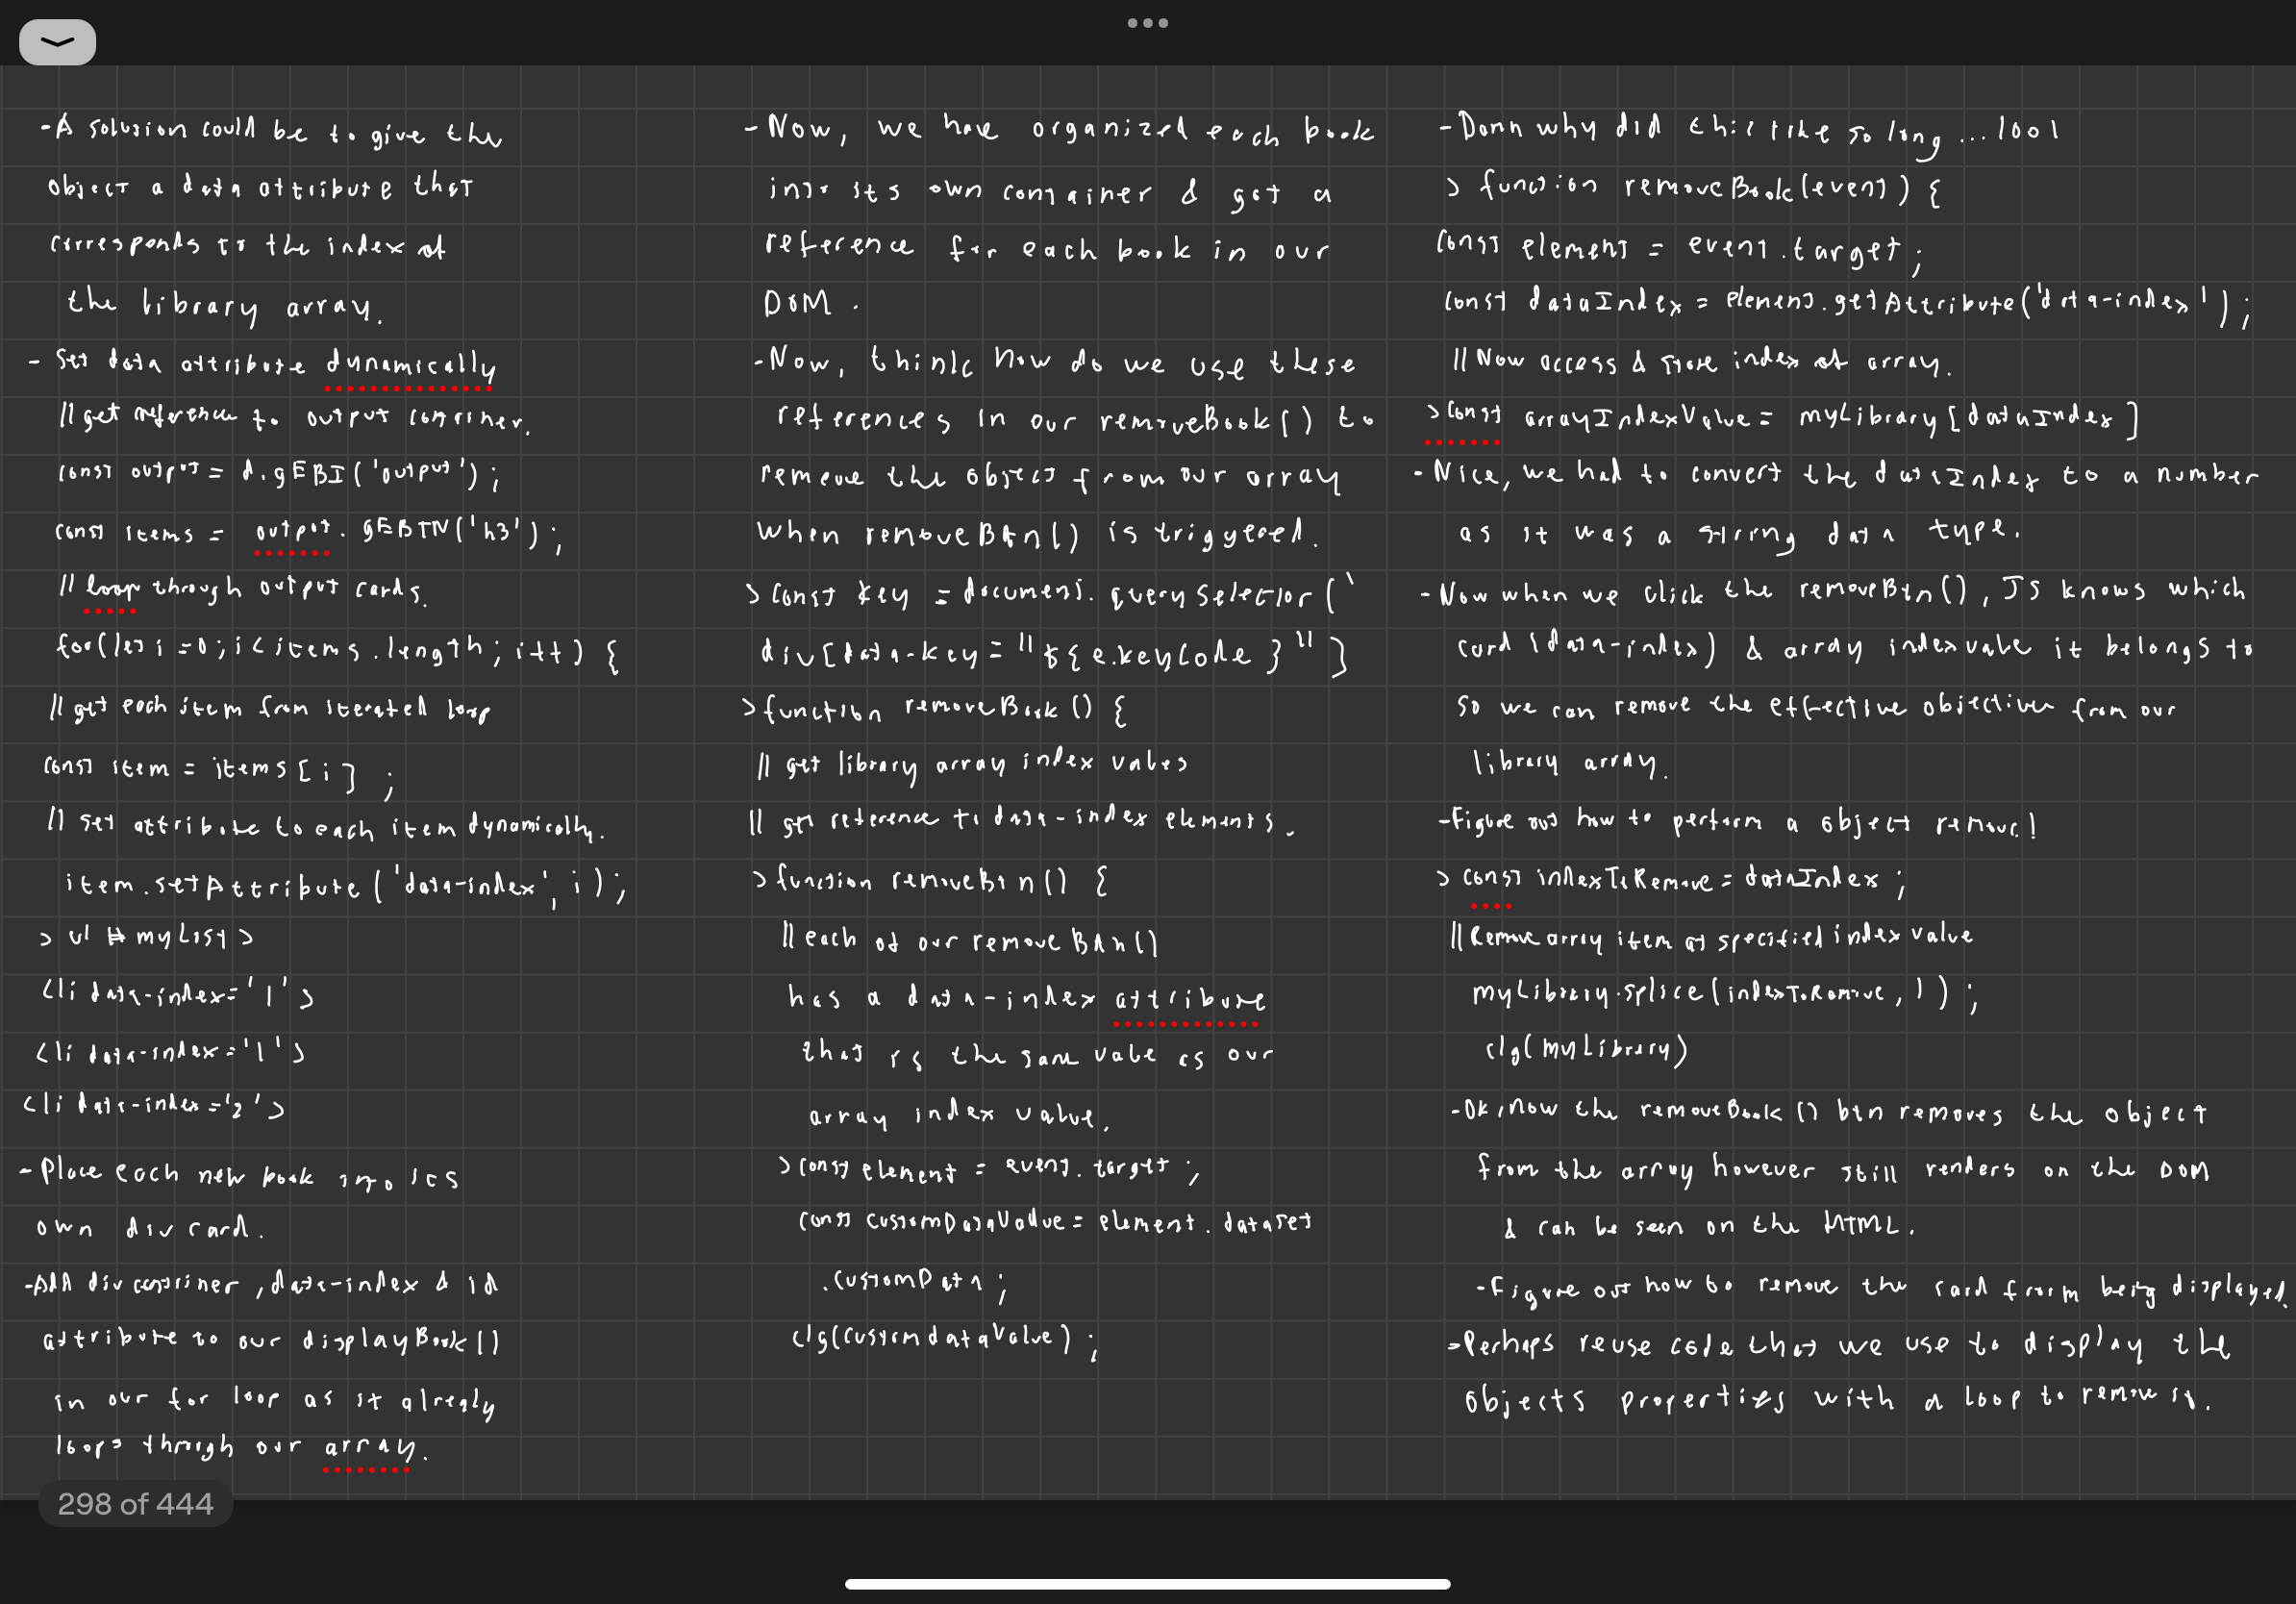 -A solusion could be to give the
object a data attribute that
corresponds to the index of
the library array.
- Set data attribute dynamically
// get reference to output container.
const output = d.gEBI('output');
const items = output.gEBTN('h3');
// loop through output cards.
for(let i=0; i<items.length; i++) {
// get each item from iterated loop
const item = items[i] ;
// set attribute to each item dynamically.
item.setAttribute('data-index', i);
> ul # myList >
<li data-index='1'>
<li data-index='1'>
<li data-index='2'>
- Place each new book into its
own div card.
-Add div container, data-index & id
attribute to our displayBook()
in our for loop as it alredy
loops through our array.
- Now, we have organized each book
into its own container & got a
reference for each book in our
DOM.
- Now, think how do we use these
references in our removeBook() to
remove the object from our array
when removeBtn() is triggered.
> const key = document.querySelector(`
div[data-key="${e.keyCode}"]
> function removeBook() {
// get library array index values
// get reference to data-index elements.
> function removeBtn() {
// each of our removeBtn()
has a data-index attribute
that is the same value as our
array index value.
> const element = event.target ;
const customDataValue = element.dataset
.customData ;
clg(customdataValue) ;
- Damn why did this take so long ... lool
> function removeBook(event) {
const element = event.target ;
const dataIndex = element.getAttribute('data-index') ;
// Now access & store index of array.
> const arrayIndexValue = myLibrary[dataIndex]
- Nice, we had to convert the dataIndex to a number
as it was a string data type.
- Now when we click the removeBtn(), JS knows which
card (data-index) & array index value it belongs to
so we can remove the effective from our
library array.
-Figure out how to perform a object remove!
> const indexToRemove = dataIndex ;
// Remove array item at specified index value
myLibrary.splice(indexToRemove, 1) ;
clg(myLibrary)
-Ok, now the removeBook() btn removes the object
from the array however still renders on the DOM
& can be seen on the HTML.
-Figure out how to remove the card from being displayed.
-Perhaps reuse code that we use to display the
objects properties with a loop to remove it.
298 of 444